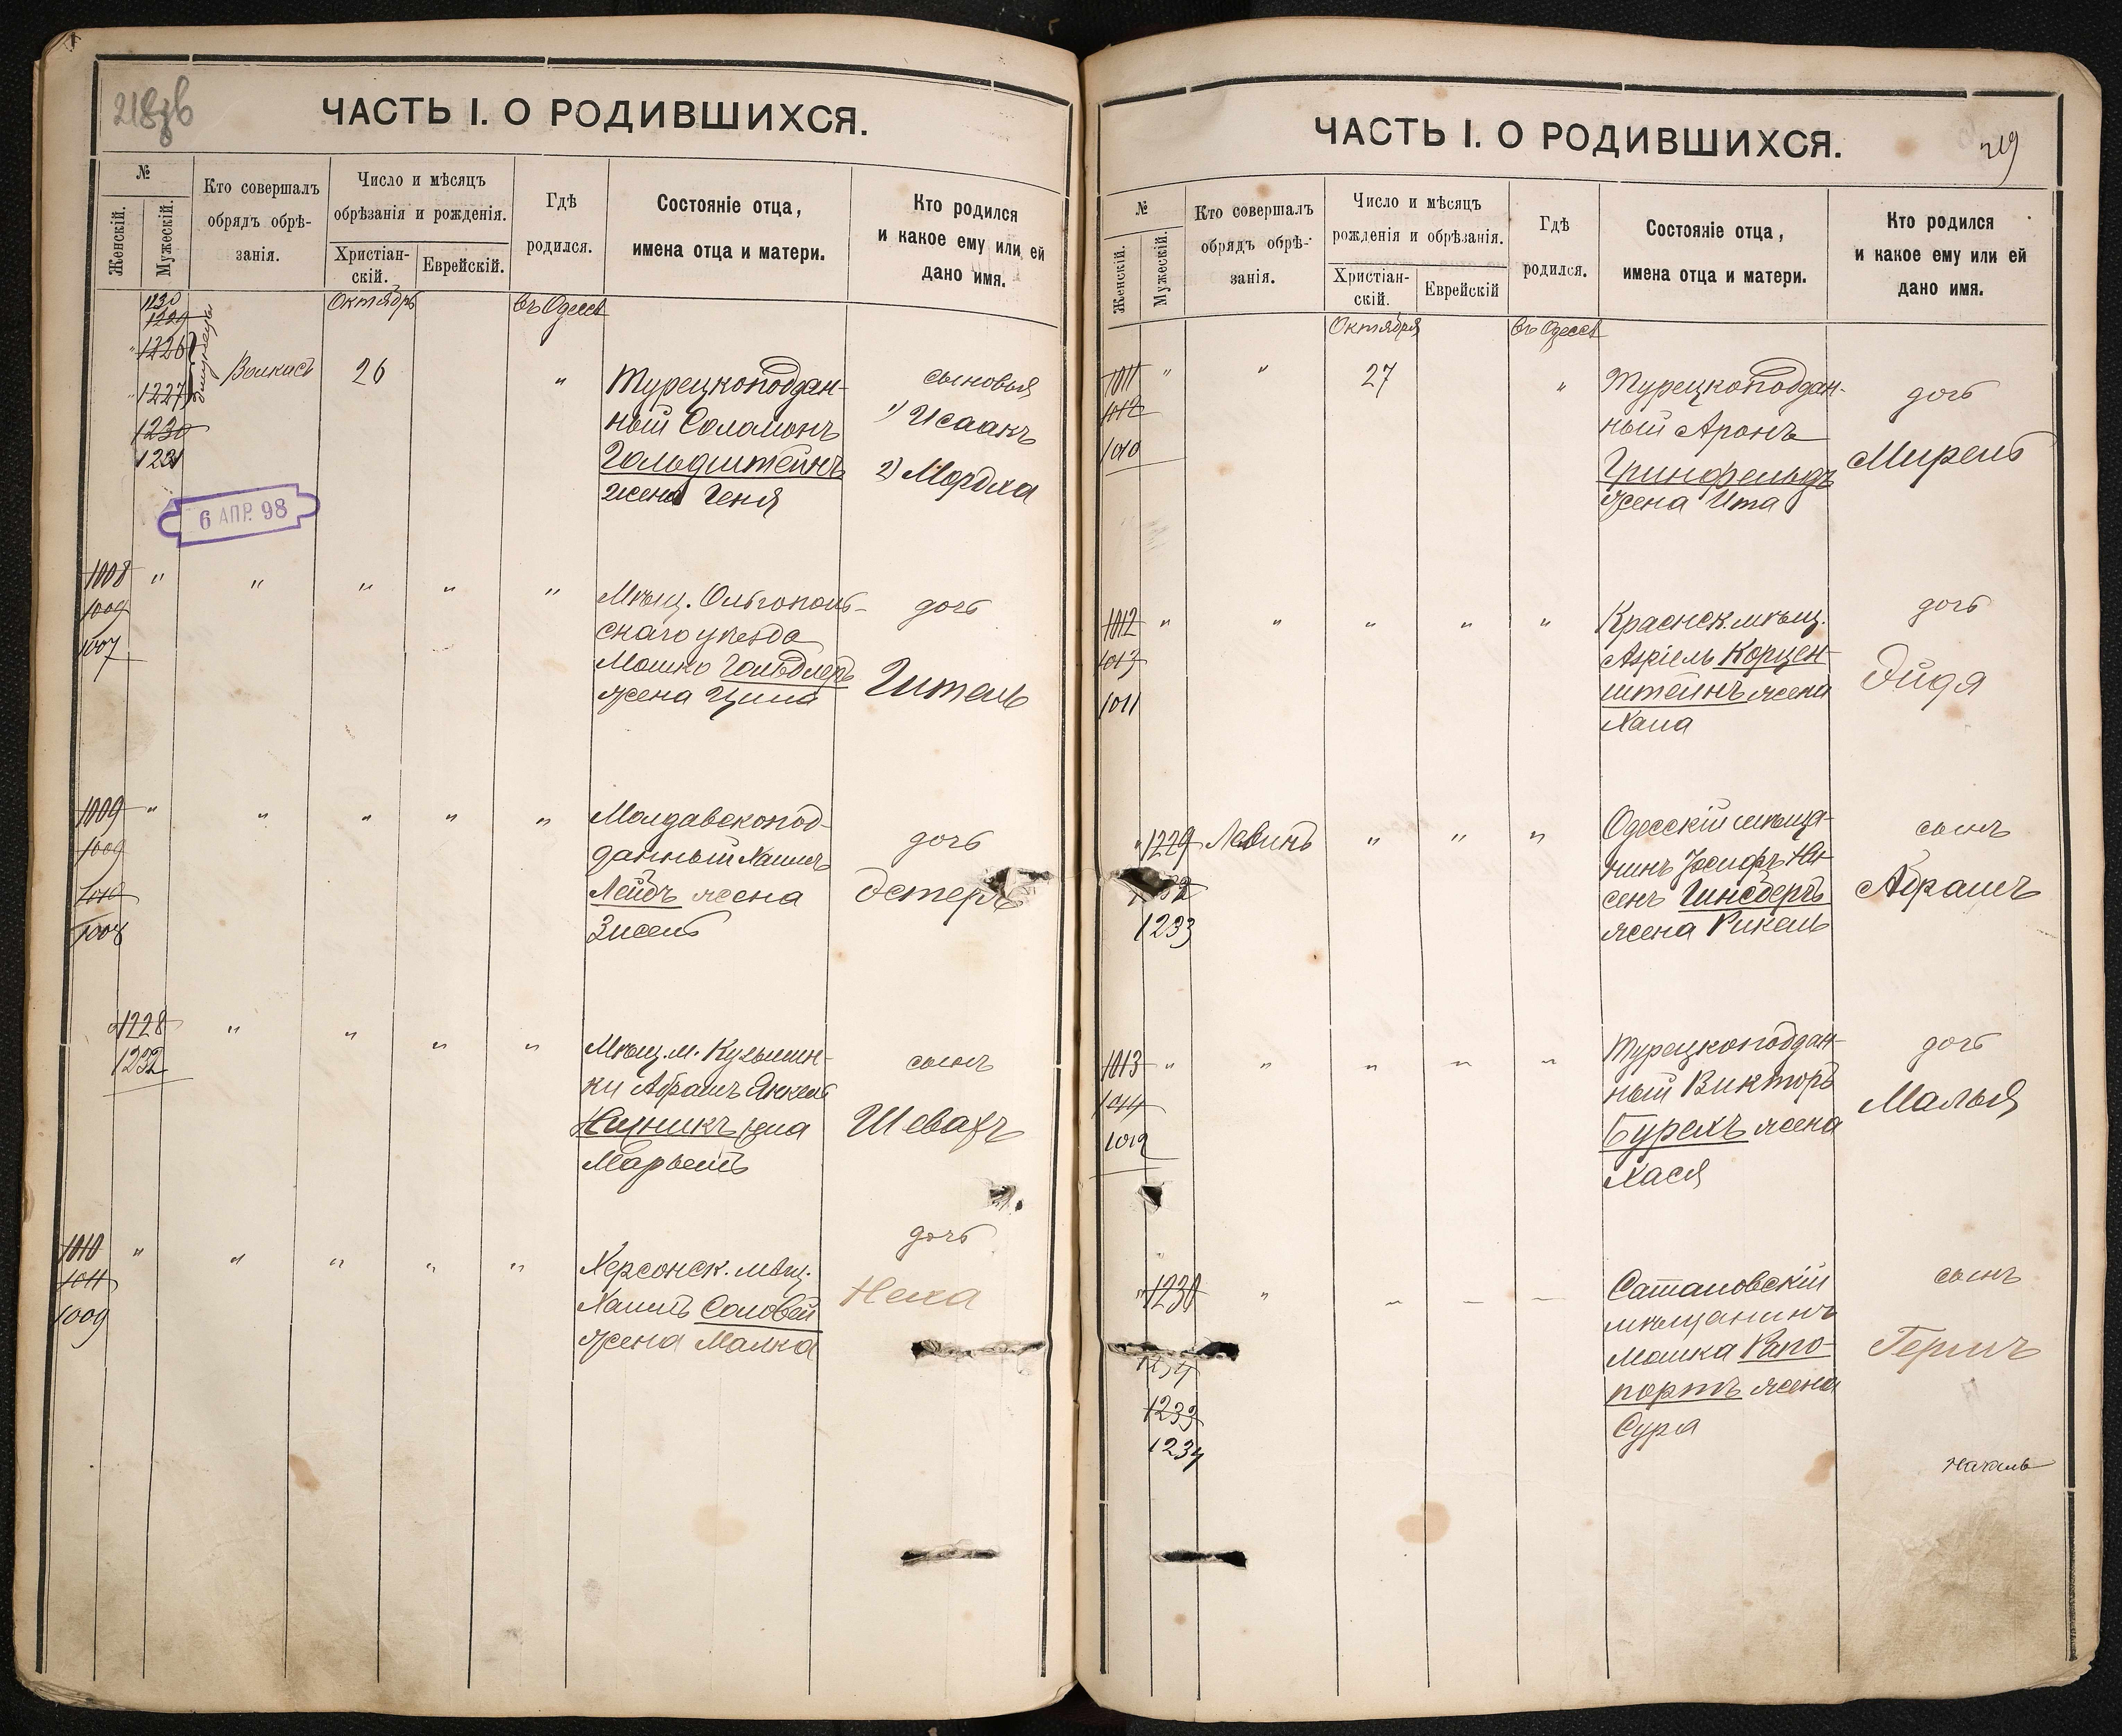 218об
ЧАСТЬ I. О РОДИВШИХСЯ.
№
Женскій.
Мужескій.
Кто совершалъ
обрядъ обрѣ-
занія.
Число и мѣсяцъ
обрѣзанія и рожденія.
Христіан-
скій.
Еврейскій.
Гдѣ
родился.
Состояніе отца,
имена отца и матери.
Кто родился
и какое ему или ей
дано имя.
Октябрь
въ Одессѣ
1230
1229
1226
1227
1230
1231
близнецы
26
"
Турецкоподдан-
ный Соломонъ
Гольдштейнъ
жена Геня
сыновья
1) Исаакъ
2) Мордха
6 АПР. 98
1008
1009
1007
" " " " "
Мѣщ. Ольгополь-
скаго уѣзда
Мошко
жена Ципа
дочь
Гитель
1009
1009
1010
1008
" " " " "
Молдавскопод-
данный Хаимъ
Лейбъ жена
Зисель
дочь
Эстеръ
1228
1232
" " " "
Мѣщ. м. Кузьмин-
ки Абрамъ Янкель
сынъ
Шевахъ
1010
1011
1009
" " " " "
Херсонск. мѣщ.
Хаимъ Соловей
жена Малка
дочь
Неха
ЧАСТЬ I. О РОДИВШИХСЯ.
219
№
Женскій.
Мужескій.
Кто совершалъ
обрядъ обрѣ-
занія.
Число и мѣсяцъ
рожденія и обрѣзанія.
Христіан-
скій.
Еврейскій
Гдѣ
родился.
Состояніе отца,
имена отца и матери.
Кто родился
и какое ему или ей
дано имя.
Октября
въ Одессѣ
1011
1012
1010
" "
27
"
Турецкоподдан-
ный Аронъ
Гринфельдъ
жена Ита
дочь
Мирель
1012
1013
1011
" " " " "
Краснск. мѣщ.
Азріель Корцен-
штейнъ жена
Хана
дочь
Эйдя
1229
32
1233
Левинъ
" " "
Одесскій мѣща-
нинъ Іосифъ Ни-
сенъ Гинсбергъ
жена Рикель
сынъ
Абрамъ
1013
1014
1012
" " " " "
Турецкоподдан-
ный Викторъ
жена
Хася
дочь
Малья
1230
1234
1233
1234
"
Сатановскій
мѣщанинъ
Мошка Рапо-
портъ жена
Сура
сынъ
Гершъ